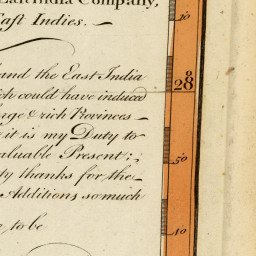 East India Company,
East Indies. —
and the East India
which could have induced
large & rich Provinces —
it is my Duty to
valuable Present;
thanks for the
Additions so much
to be
10
28
50
40